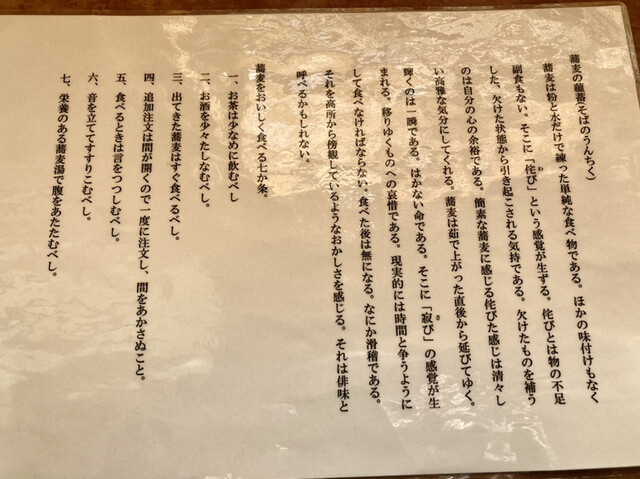 蕎麦の蘊蓄(そばのうんちく)
蕎麦は粉と水だけで練った単純な食べ物である。ほかの味付けもなく
副食もない。そこに「侘び」という感覚が生ずる。侘びとは物の不足
した、欠けた状態から引き起こされる気持である。欠けたものを補う
のは自分の心の余裕である。簡素な蕎麦に感じる侘びた感じは清々し
い高雅な気分にしてくれる。蕎麦は茹で上がった直後から延びてゆく。
輝くのは一瞬である。はかない命である。そこに「寂び」の感覚が生
まれる。移りゆくものへの哀惜である。現実的には時間と争うように
して食べなければならない、食べた後は無になる。なにか滑稽である。
それを高所から傍観しているようなおかしさを感じる。それは俳味と
呼べるかもしれない。
蕎麦をおいしく食べる七か条。
一、お茶は少なめに飲むべし
二、お酒を少々たしなむべし。
三、出てきた蕎麦はすぐ食べるべし。
四、追加注文は間が開くので一度に注文し、間をあかさぬこと。
五、食べるときは言をつつしむべし。
六、音を立ててすすりこむべし。
七、栄養のある蕎麦湯で腹をあたたむべし。